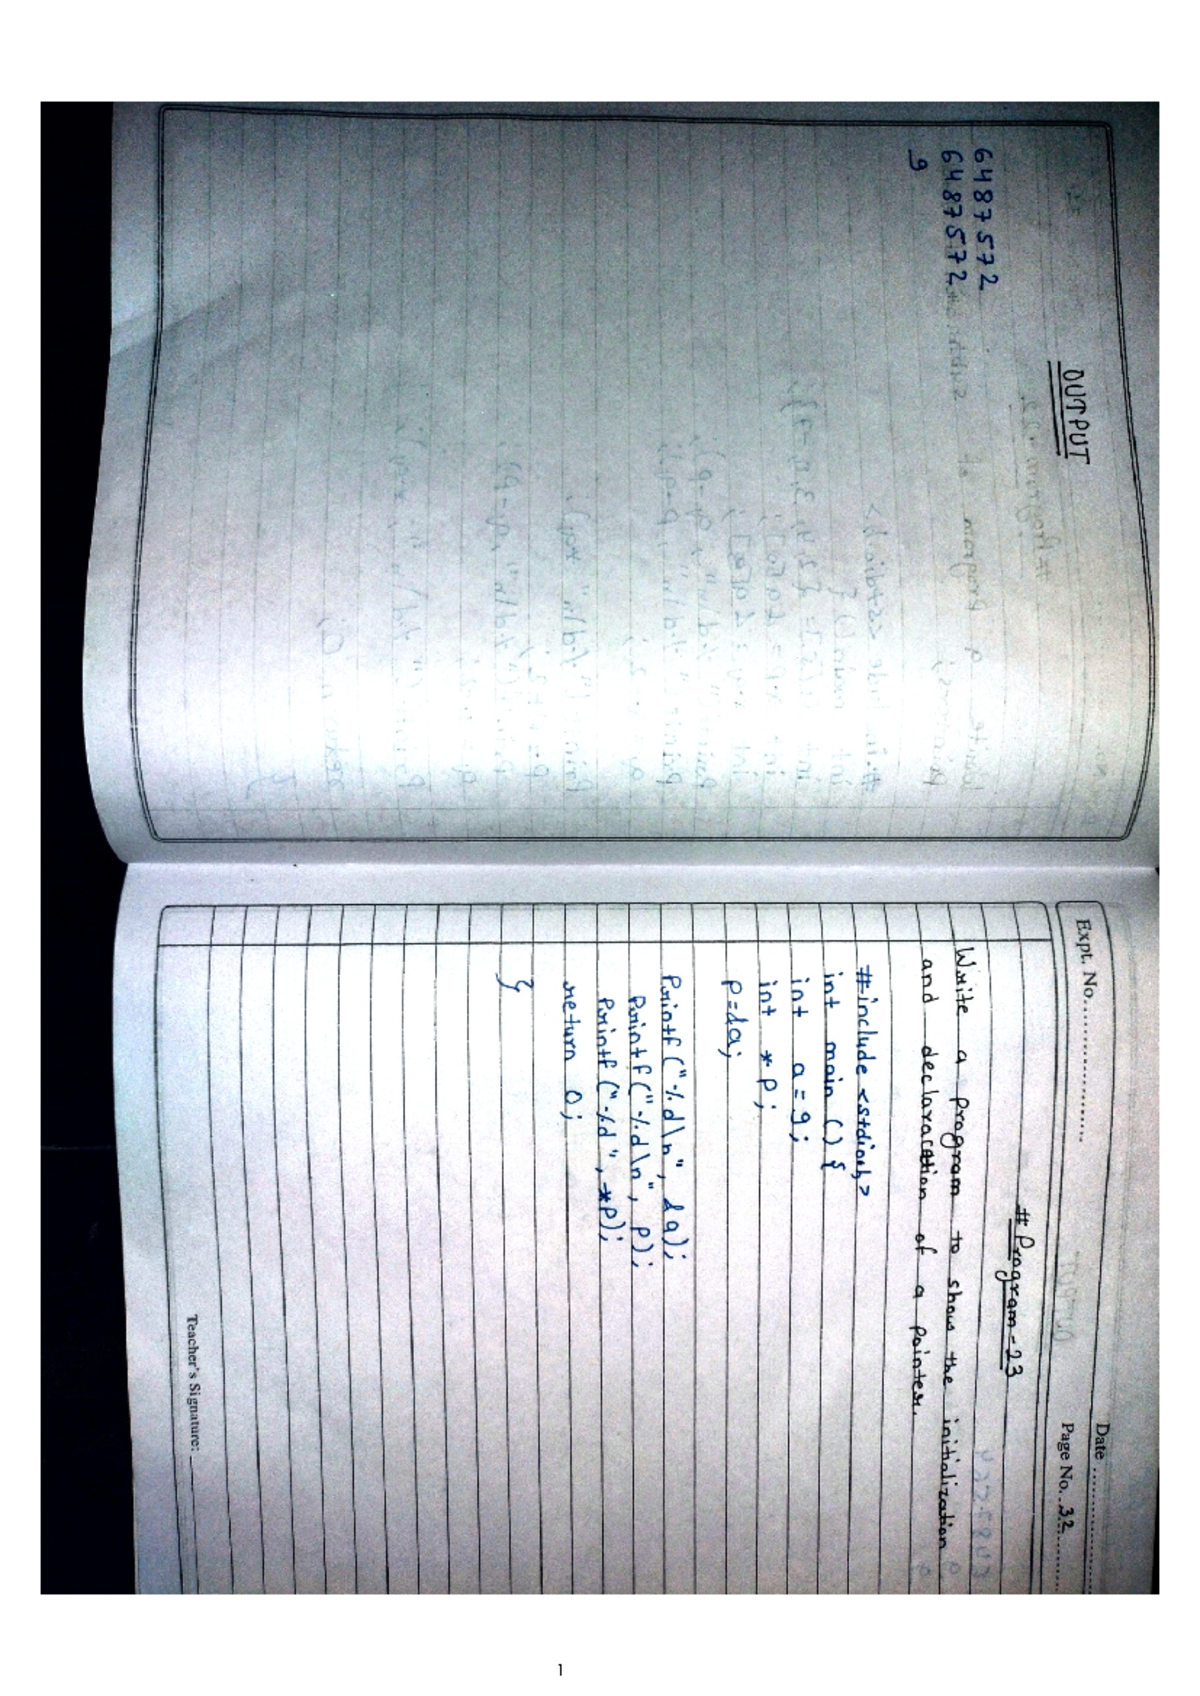 OUTPUT
6487572
6487572
9
Expt. No.
Date
Page No. 32
# Program - 23
Write a program to show the initialization
and declaracation of a pointer.
#include <stdio.h>
int main () {
int a = 9;
int *p;
p=&a;
printf ("%d\n", &a);
printf ("%d\n", p);
printf ("%d", *p);
return 0;
}
Teacher's Signature:
1